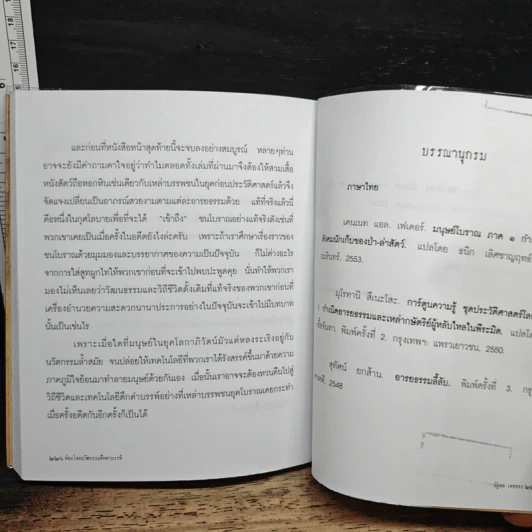 และก่อนที่หนังสือหน้าสุดท้ายนี้จะจบลงอย่างสมบูรณ์ หลายๆท่าน
อาจจะยังมีคำถามคาใจอยู่ว่าทำไมตลอดทั้งเล่มที่ผ่านมาจึงต้องให้สวมเสื้อ
หนังสัตว์ถือหอกหินเช่นเดียวกับเหล่าบรรพชนในยุคก่อนประวัติศาสตร์แล้วจึง
จัดแจงเปลี่ยนเป็นอาภรณ์สวยงามตามแต่ละอารยธรรมด้วย แท้ที่จริงแล้วนี่
คือหนึ่งในกุศโลบายเพื่อที่จะได้ "เข้าถึง" ชนโบราณอย่างแท้จริงดังเช่นที่
พวกเขาเคยเป็นเมื่อครั้งในอดีตยังไงล่ะครับ เพราะถ้าเราศึกษาเรื่องราวของ
ชนโบราณด้วยมุมมองและบรรยากาศของความเป็นปัจจุบัน ก็ไม่ต่างอะไร
จากการใส่สูทผูกไทให้พวกเขาก่อนที่จะเข้าไปพบปะพูดคุย นั่นทำให้พวกเรา
มองไม่เห็นเลยว่าวัฒนธรรมและวิถีชีวิตดั้งเดิมที่แท้จริงของพวกเขาก่อนที่
เครื่องอำนวยความสะดวกนานาประการอย่างในปัจจุบันจะเข้าไปมีบทบาท
นั้นเป็นเช่นไร
เพราะเมื่อใดที่มนุษย์ในยุคโลกาภิวัตน์มัวแต่หลงระเริงอยู่กับ
นวัตกรรมล้ำสมัย จนปล่อยให้เทคโนโลยีที่พวกเราได้รังสรรค์ขึ้นมาด้วยความ
ภาคภูมิใจย้อนมาทำลายมนุษย์ด้วยกันเอง เมื่อนั้นเราอาจจะต้องหวนคืนไปสู่
วิถีชีวิตและเทคโนโลยีดึกดำบรรพ์อย่างที่เหล่าบรรพชนยุคโบราณเคยกระทำ
เมื่อครั้งอดีตกันอีกครั้งก็เป็นได้
บรรณานุกรม
ภาษาไทย
เคนเนท แอล. เฟเดอร์. มนุษย์โบราณ ภาค ๑
สังคมนักเก็บของป่า-ล่าสัตว์. แปลโดย ธนิก เลิศชาญฤทธ์
2553.
มุโรทานิ สึเนะโสะ. การ์ตูนความรู้ ชุดประวัติศาสตร์โลก
กำเนิดอารยธรรมและเหล่ากษัตริย์ผู้หลับใหลในพีระมิด. แปลโดย
พิมพ์ครั้งที่ 2. กรุงเทพฯ: แพรวเยาวชน, 2550.
สุทัศน์ ยกส้าน. อารยธรรมลี้ลับ. พิมพ์ครั้งที่ 3.
2548